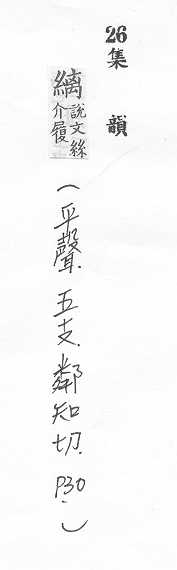 26
集韻
縭說文絲
介履
(平聲.五支.鄰知切.P30.)